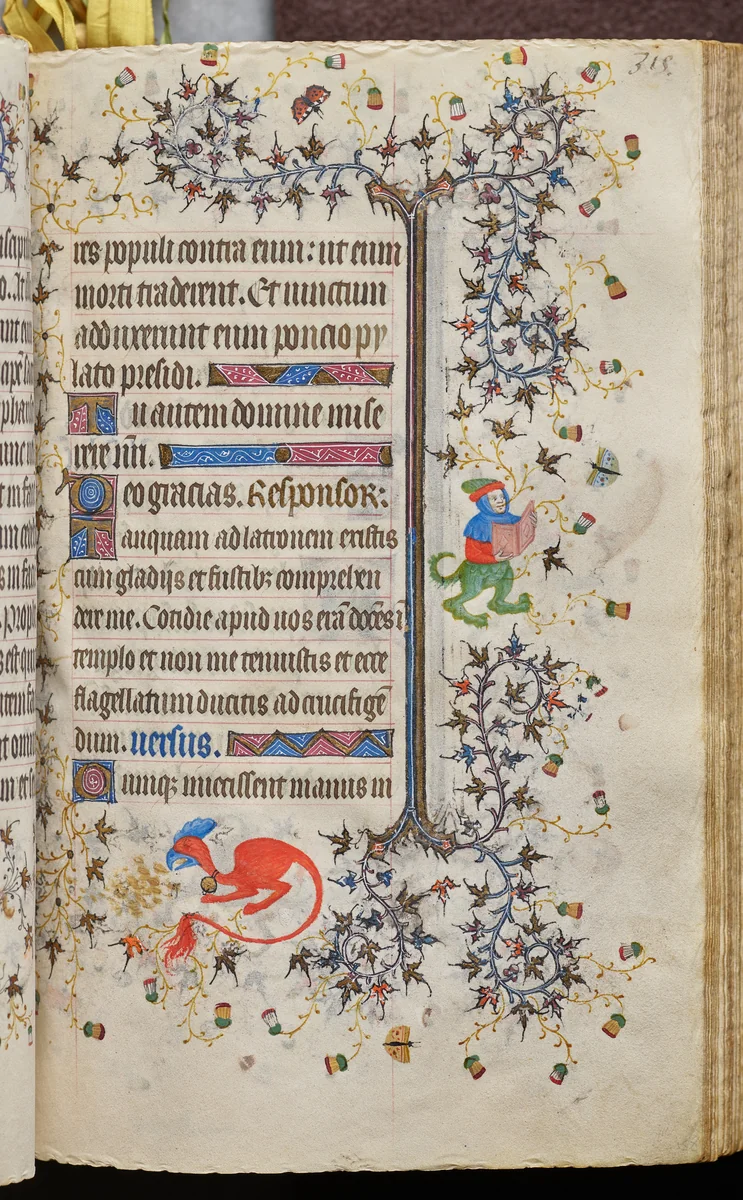 318.
res populi contra eum: ut eum
morti traderent. Et uinctum
adduxerunt eum poncio py
lato presidi.
Tu autem domine mise
rere nr̄i.
Deo gracias. Responsor:
Tanquam ad latronem existis
cum gladijs et fustibꝫ comprehen
dere me. Cotidie apud uos erā docēs ī
templo et non me tenuistis et ecce
flagellatum ducitis ad crucifigē
dum. uersus.
Cumqꝫ iniecissent manus in